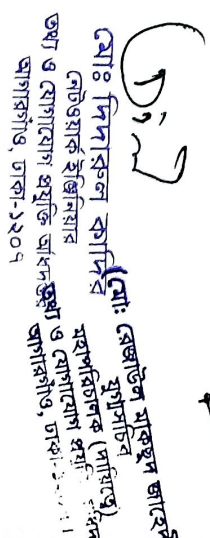 মোঃ দিদারুল কাদির
নেটওয়ার্ক ইঞ্জিনিয়ার
তথ্য ও যোগাযোগ প্রযুক্তি অধিদপ্তর
আগারগাঁও, ঢাকা-১২০৭
(মোঃ রেজাউল মাকছুদ জাহেদী
যুগ্মসচিব
মহাপরিচালক (দায়িত্বে)
তথ্য ও যোগাযোগ প্রযু
আগারগাঁও, ঢাকা-